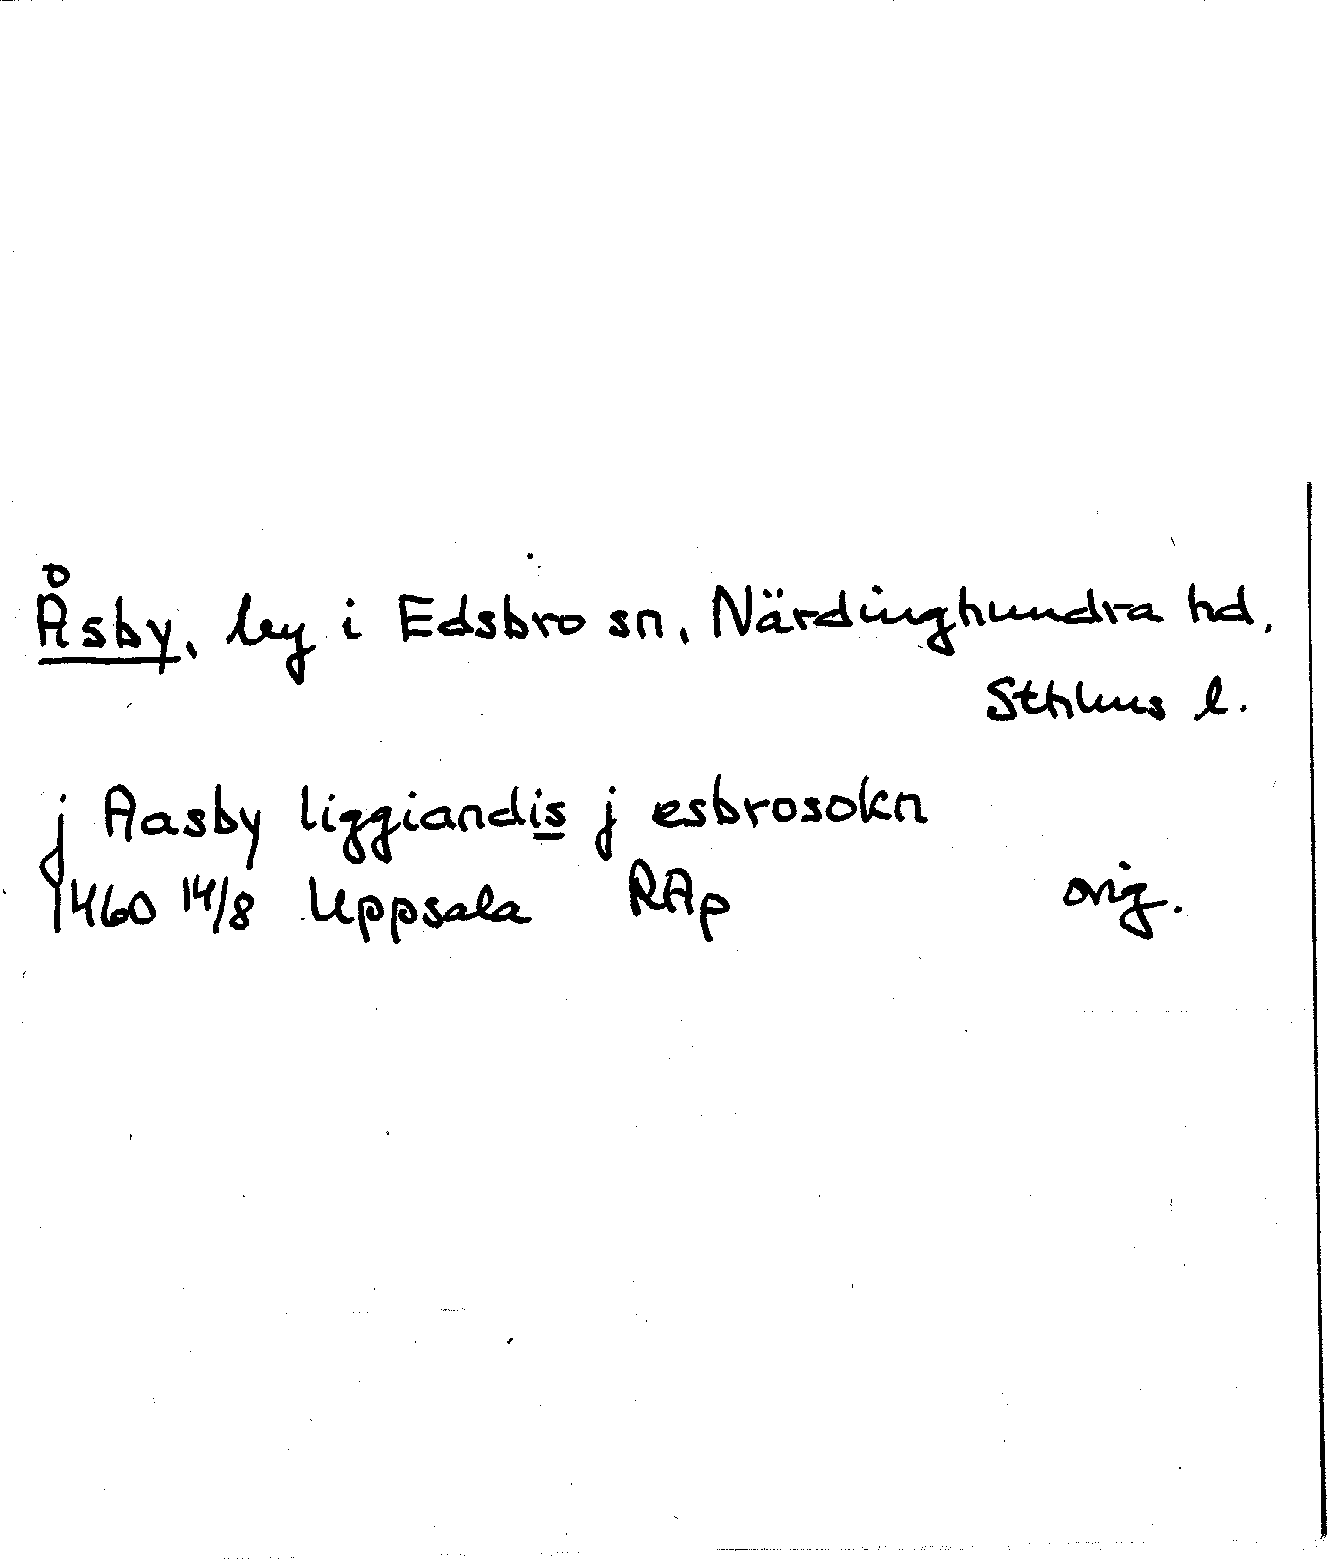 Åsby, by i Edsbro sn, Närdinghundra hd,
Sthlms l.
j Aasby liggiandis j esbrosokn
1460 14/8 Uppsala RAp orig.